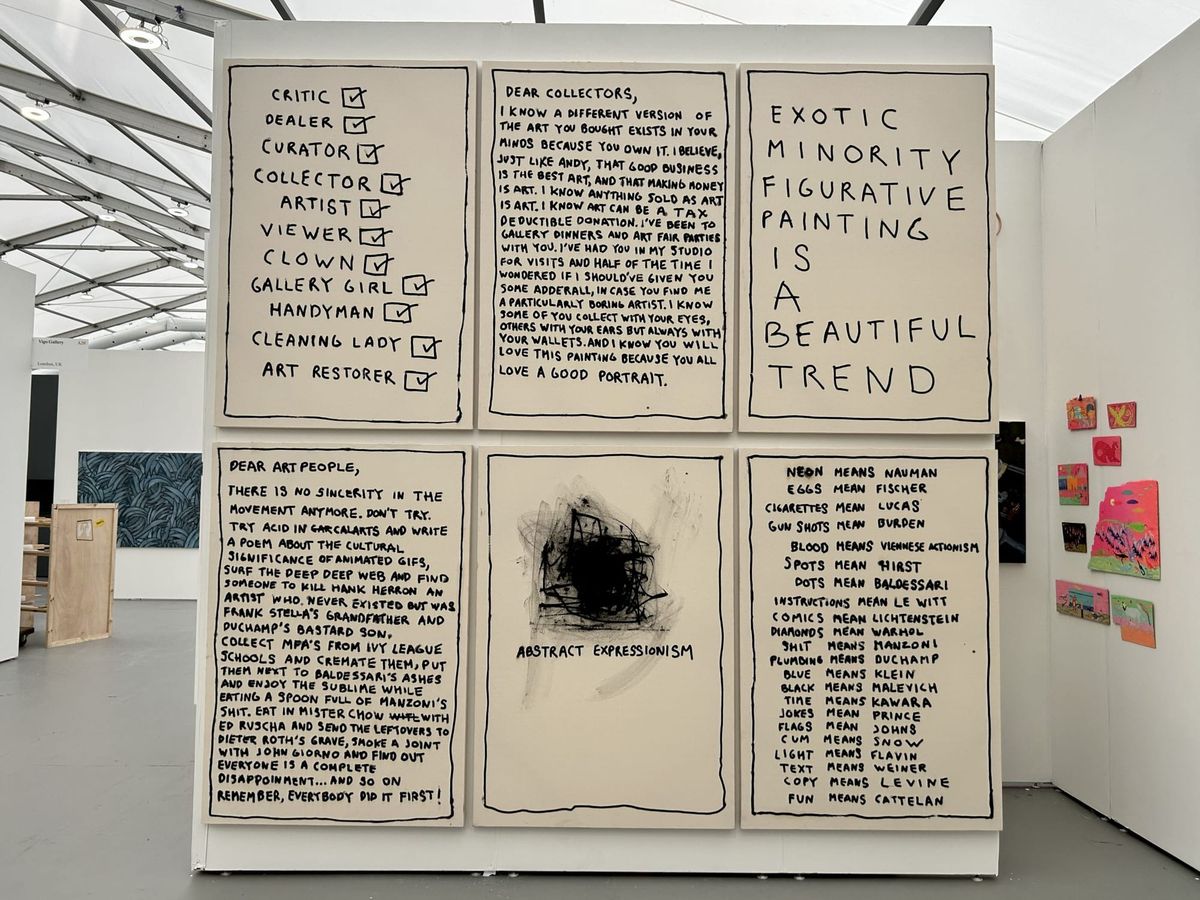 CRITIC
DEALER
CURATOR
COLLECTOR
ARTIST
VIEWER
CLOWN
GALLERY GIRL
HANDYMAN
CLEANING LADY
ART RESTORER
DEAR COLLECTORS,
I KNOW A DIFFERENT VERSION OF
THE ART YOU BOUGHT EXISTS IN YOUR
MINDS BECAUSE YOU OWN IT. I BELIEVE,
JUST LIKE ANDY, THAT GOOD BUSINESS
IS THE BEST ART, AND THAT MAKING MONEY
IS ART. I KNOW ANYTHING SOLD AS ART
IS ART. I KNOW ART CAN BE A TAX
DEDUCTIBLE DONATION. I'VE BEEN TO
GALLERY DINNERS AND ART FAIR PARTIES
WITH YOU. I'VE HAD YOU IN MY STUDIO
FOR VISITS AND HALF OF THE TIME I
WONDERED IF I SHOULD'VE GIVEN YOU
SOME ADDERALL, IN CASE YOU FIND ME
A PARTICULARLY BORING ARTIST. I KNOW
SOME OF YOU COLLECT WITH YOUR EYES,
OTHERS WITH YOUR EARS BUT ALWAYS WITH
YOUR WALLETS. AND I KNOW YOU WILL
LOVE THIS PAINTING BECAUSE YOU ALL
LOVE A GOOD PORTRAIT.
EXOTIC
MINORITY
FIGURATIVE
PAINTING
IS
A
BEAUTIFUL
TREND
DEAR ART PEOPLE,
THERE IS NO SINCERITY IN THE
MOVEMENT ANYMORE. DON'T TRY.
TRY ACID IN CALARTS AND WRITE
A POEM ABOUT THE CULTURAL
SIGNIFICANCE OF ANIMATED GIFS,
SURF THE DEEP DEEP WEB AND FIND
SOMEONE TO KILL HANK HERRON AN
ARTIST WHO NEVER EXISTED BUT WAS
FRANK STELLA'S GRANDFATHER AND
DUCHAMP'S BASTARD SON.
COLLECT MFA'S FROM IVY LEAGUE
SCHOOLS AND CREMATE THEM, PUT
THEM NEXT TO BALDESSARI'S ASHES
AND ENJOY THE SUBLIME WHILE
EATING A SPOON FULL OF MANZONI'S
SHIT. EAT IN MISTER CHOW WITH
ED RUSCHA AND SEND THE LEFTOVERS TO
DIETER ROTH'S GRAVE, SMOKE A JOINT
WITH JOHN GIORNO AND FIND OUT
EVERYONE IS A COMPLETE
DISAPPOINMENT... AND SO ON
REMEMBER, EVERYBODY DID IT FIRST!
ABSTRACT EXPRESSIONISM
NEON MEANS NAUMAN
EGGS MEAN FISCHER
CIGARETTES MEAN LUCAS
GUN SHOTS MEAN BURDEN
BLOOD MEANS VIENNESE ACTIONISM
SPOTS MEAN HIRST
DOTS MEAN BALDESSARI
INSTRUCTIONS MEAN LE WITT
COMICS MEAN LICHTENSTEIN
DIAMONDS MEAN WARHOL
SHIT MEANS MANZONI
PLUMBING MEANS DUCHAMP
BLUE MEANS KLEIN
BLACK MEANS MALEVICH
TIME MEANS KAWARA
JOKES MEAN PRINCE
FLAGS MEAN JOHNS
CUM MEANS SNOW
LIGHT MEANS FLAVIN
TEXT MEANS WEINER
COPY MEANS LEVINE
FUN MEANS CATTELAN
Vigo Gallery
London, UK